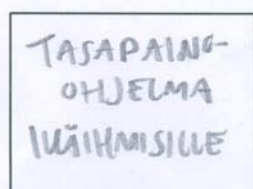 TASAPAINO-
OHJELMA
IKÄIHMISILLE